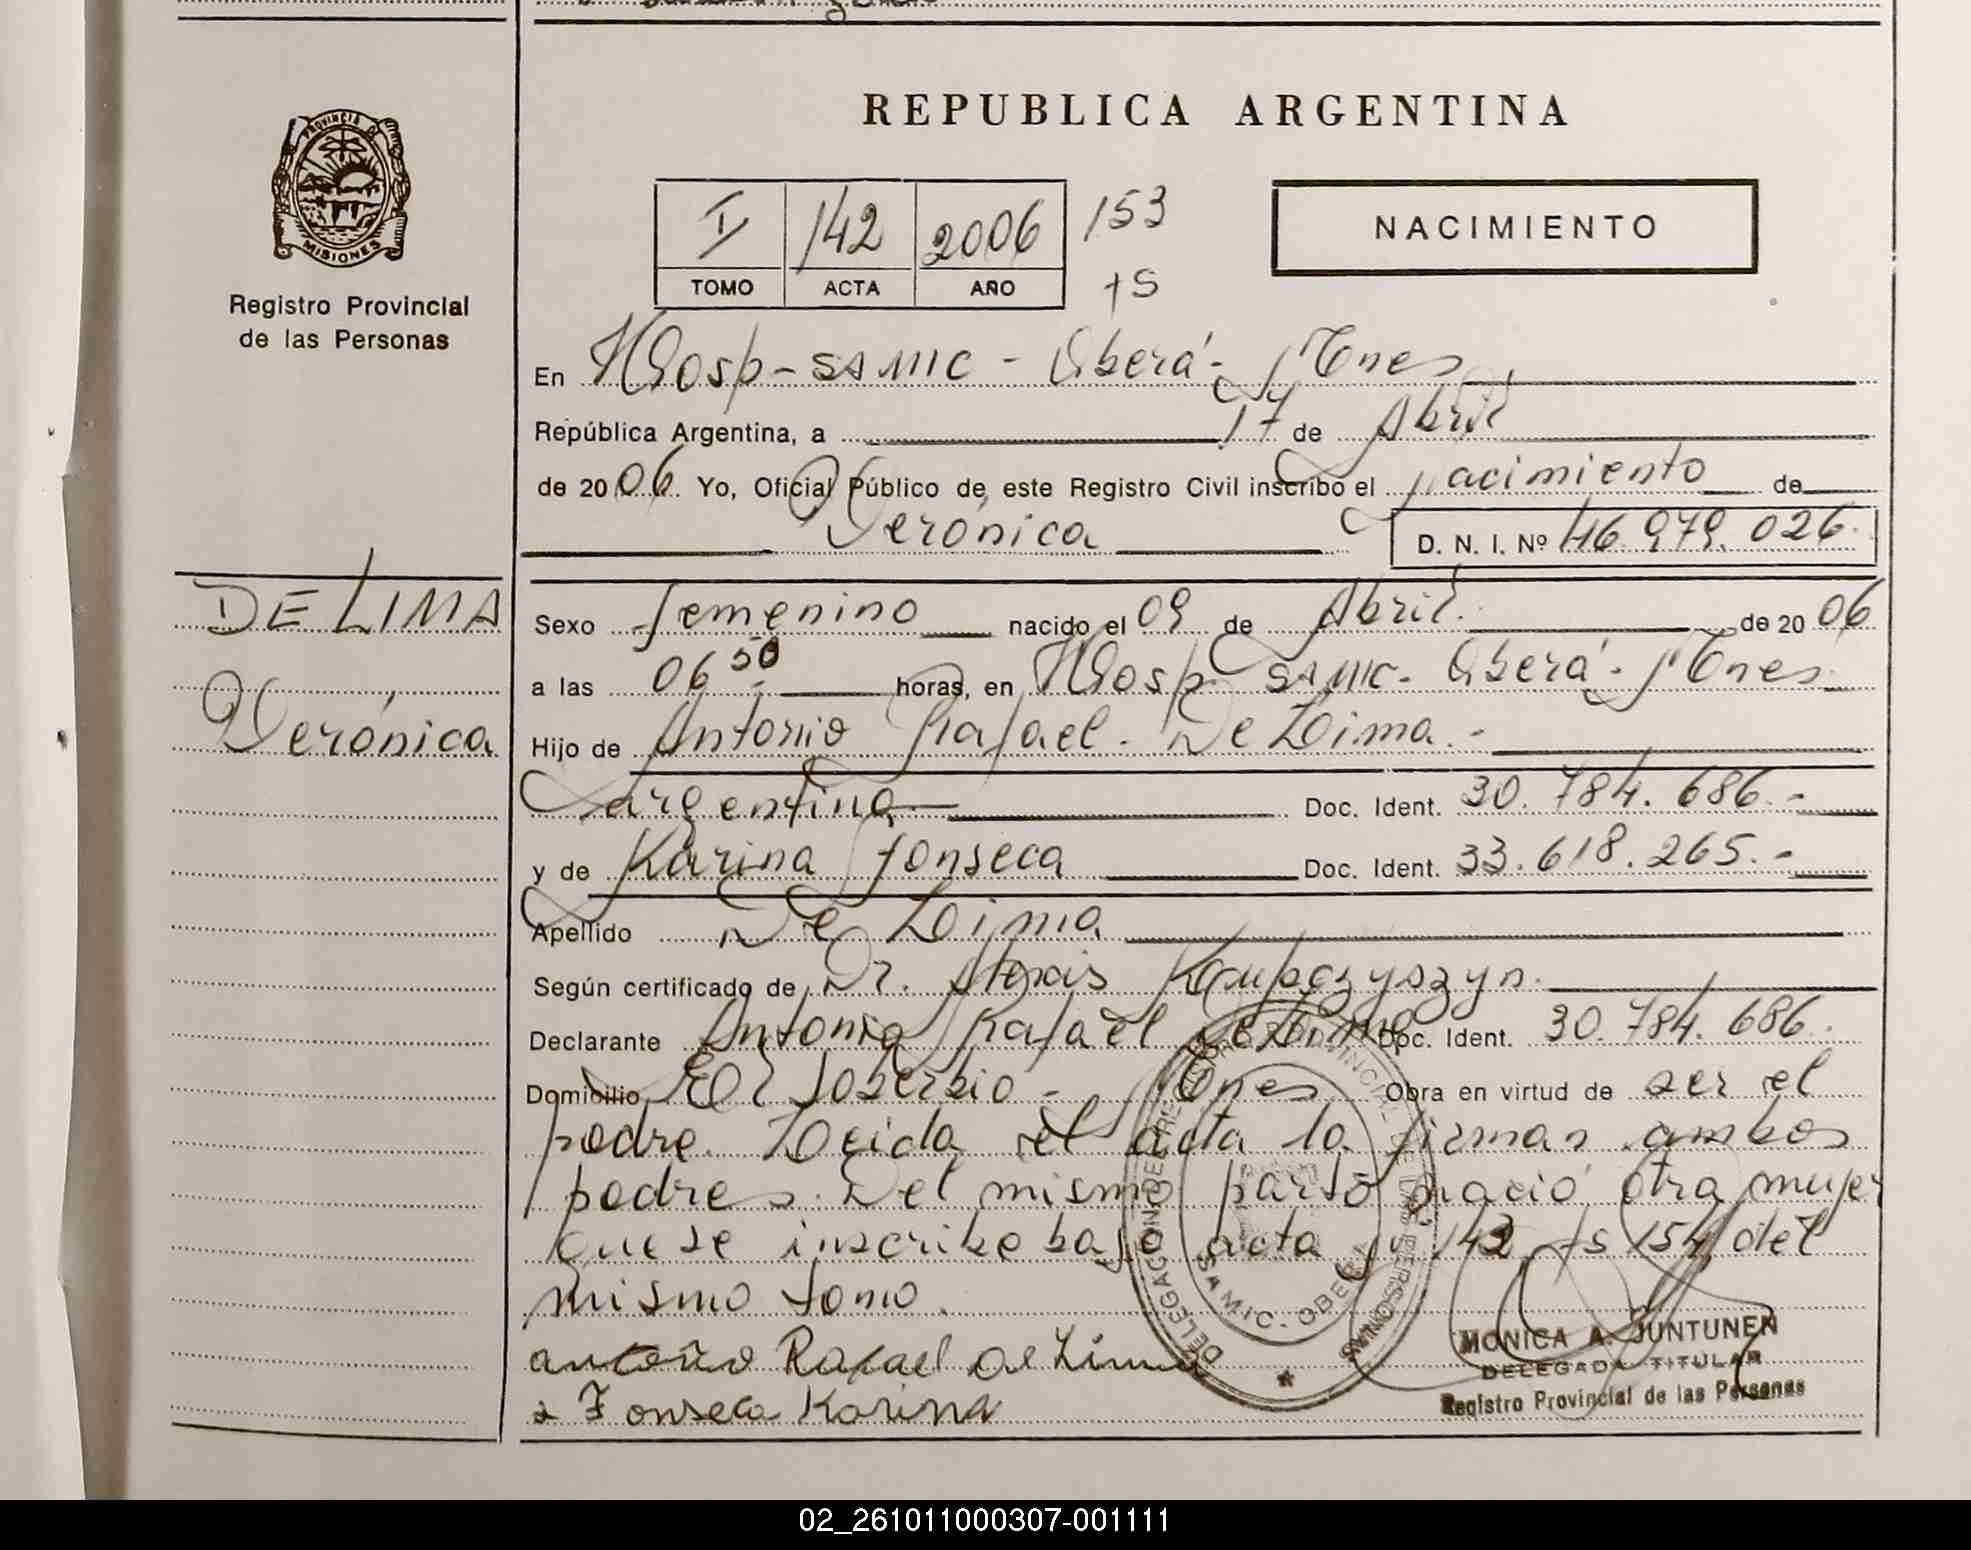 REPUBLICA ARGENTINA
PROVINCIA DE
MISIONES
Registro Provincial
de las Personas
I 142 2006 153
TOMO ACTA AÑO fS
NACIMIENTO
En Hosp-SAMIC - Oberá - Mnes
República Argentina, a 17 de Abril
de 2006. Yo, Oficial Público de este Registro Civil inscribo el nacimiento de
Verónica D. N. I. Nº 46.979.026.
DE LIMA
Verónica
Sexo femenino nacido el 09 de Abril. de 2006
a las 06 50 horas, en Hosp SAMIC - Oberá - Mnes
Hijo de Antonio Rafael. De Lima.-
argentina Doc. Ident. 30.784.686.-
y de Karina Fonseca Doc. Ident. 33.618.265.-
Apellido De Lima
Según certificado de Dr. Alexis
Declarante Antonio Rafael De Lima Doc. Ident. 30.784.686.
Domicilio El Soberbio - Mnes Obra en virtud de ser el
padre. Leida el acta la firman ambos
padres. Del mismo parto nació otra mujer
que se inscribe bajo acta nº 143 fs 154 del
mismo tomo.
antonio Rafael de Lima
Fonseca Karina
DELEGACION DEL REGISTRO PROVINCIAL DE LAS PERSONAS
SAMIC - OBERA
MONICA A. JUNTUNEN
DELEGADA TITULAR
Registro Provincial de las Personas
02_261011000307-001111